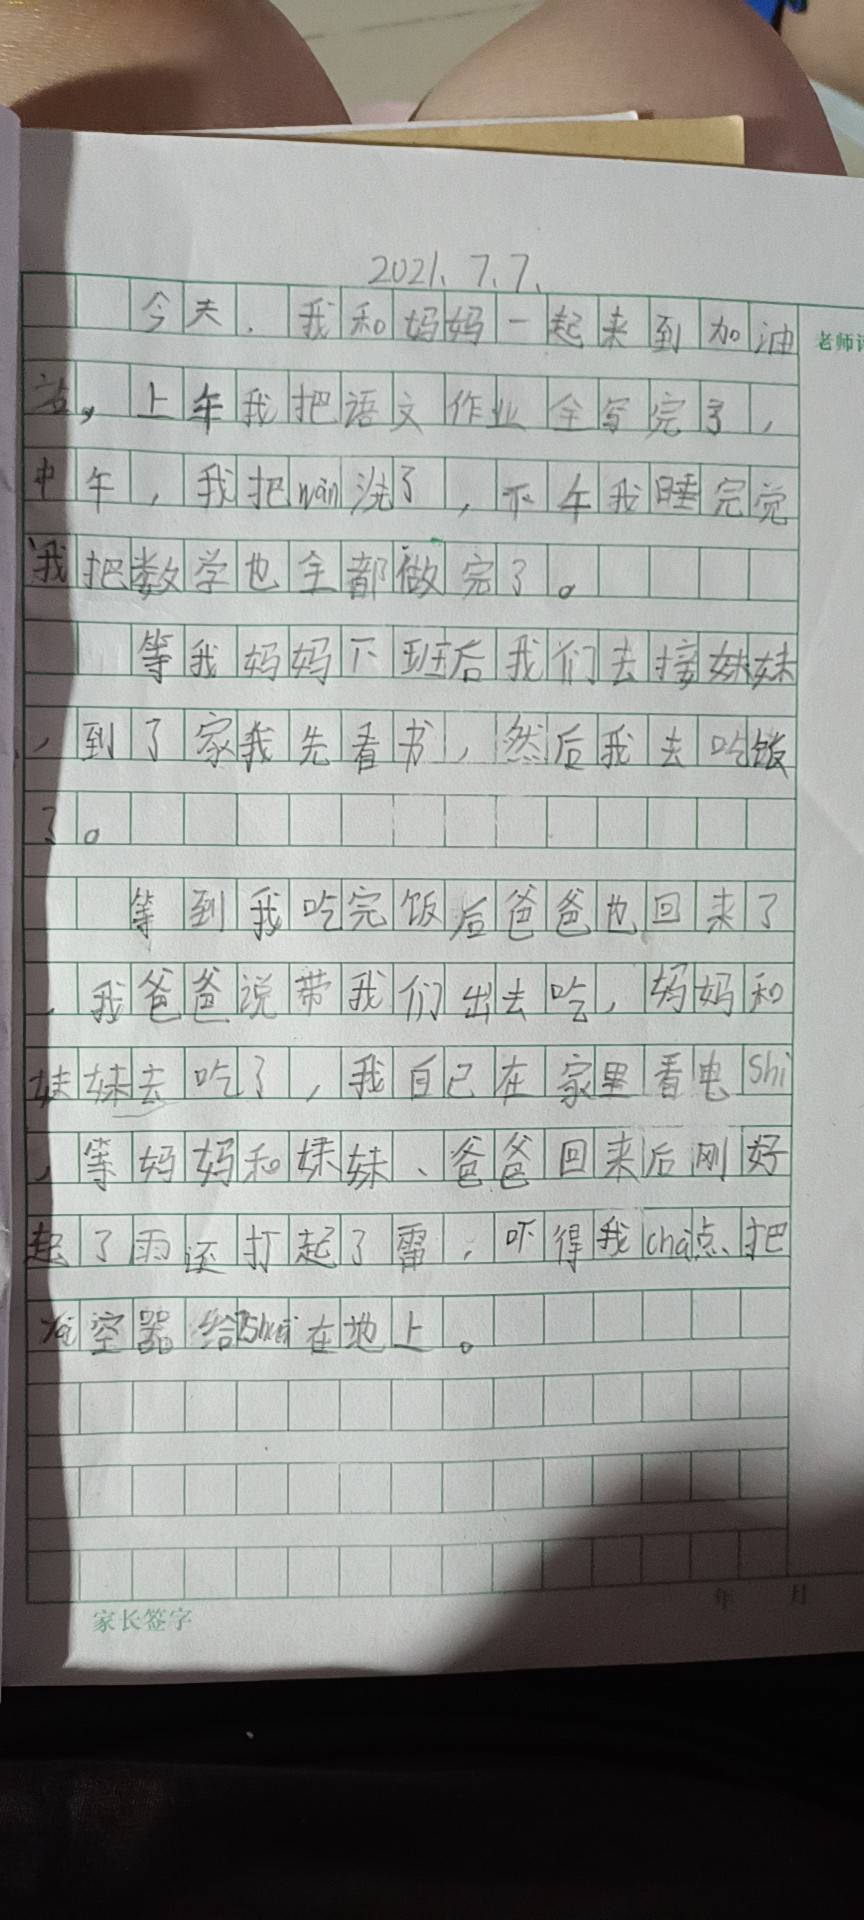 2021.7.7.
今天.我和妈妈一起来到加油
老师评
站,上午我把语文作业全写完了,
中午,我把wǎn洗了,下午我睡完觉
我把数学也全都做完了。
等我妈妈下班后我们去接妹妹
,到了家我先看书,然后我去吃饭
了。
等到我吃完饭后爸爸也回来了
,我爸爸说带我们出去吃,妈妈和
妹妹去吃了,我自己在家里看电Shì
,等妈妈和妹妹、爸爸回来后刚好
起了雨还打起了雷,吓得我chà点把
空器给Shuāi在地上。
家长签字
年 月